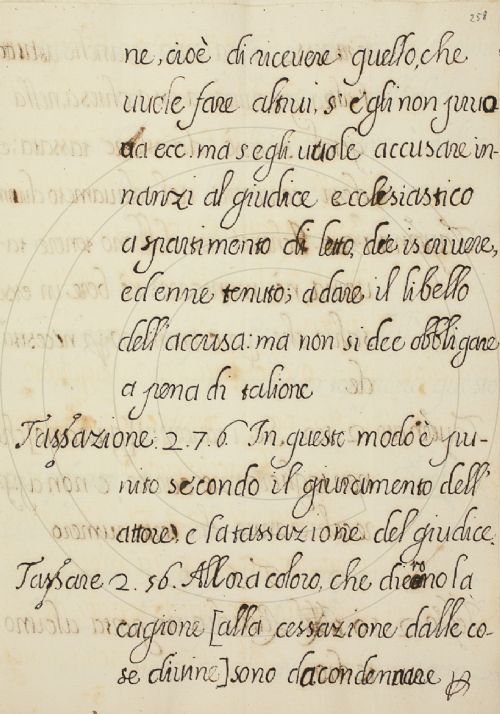 258
ne, cioè di ricevere quello, che
vuole fare altrui, s'egli non pruo
va ecc. ma s'egli vuole accusare in-
nanzi al giudice ecclesiastico
a spartimento di letto, dee iscrivere,
ed enne tenuto; a dare il libello
dell'accusa: ma non si dee obbligare
a pena di talione
Tassazione. 2. 7. 6. In questo modo è pu-
nito secondo il giuramento dell'
attore, e la tassazione del giudice.
Tassare 2. 56. Allora coloro, che dierono la
cagione [alla cessazione dalle co-
se divine] sono da condennare